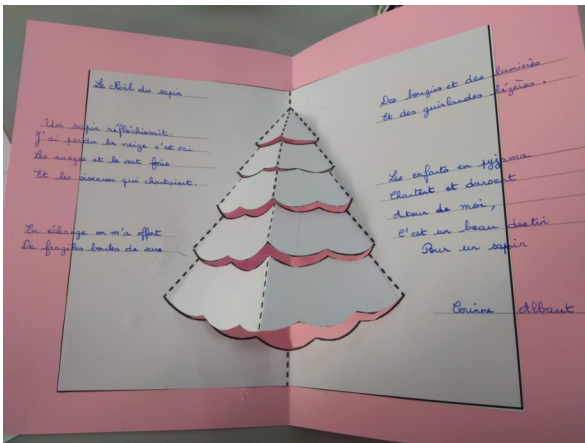 Le Noël du sapin
Un sapin réfléchissait.
J'ai perdu la neige c'est vrai
Les nuages et le vent frais
Et les oiseaux qui chantaient.
En échange on m'a offert
De fragiles boules de verre
Des bougies et des lumières
Et des guirlandes légères.
Les enfants en pyjama
Chantent et dansent
Autour de moi,
C'est un beau destin
Pour un sapin
Corinne Albaut